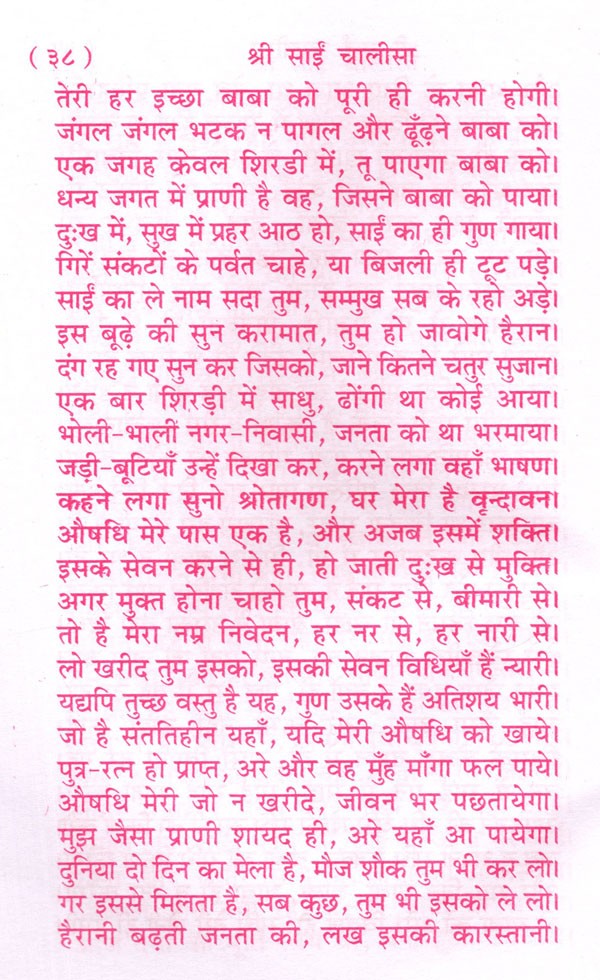 ( ३८ ) श्री साईं चालीसा
तेरी हर इच्छा बाबा को पूरी ही करनी होगी।
जंगल जंगल भटक न पागल और ढूँढ़ने बाबा को।
एक जगह केवल शिरडी में, तू पाएगा बाबा को।
धन्य जगत में प्राणी है वह, जिसने बाबा को पाया।
दुःख में, सुख में प्रहर आठ हो, साईं का ही गुण गाया।
गिरें संकटों के पर्वत चाहे, या बिजली ही टूट पड़े।
साईं का ले नाम सदा तुम, सम्मुख सब के रहो अड़े।
इस बूढ़े की सुन करामात, तुम हो जावोगे हैरान।
दंग रह गए सुन कर जिसको, जाने कितने चतुर सुजान।
एक बार शिरड़ी में साधु, ढोंगी था कोई आया।
भोली-भालीं नगर-निवासी, जनता को था भरमाया।
जड़ी-बूटियाँ उन्हें दिखा कर, करने लगा वहाँ भाषण।
कहने लगा सुनो श्रोतागण, घर मेरा है वृन्दावन।
औषधि मेरे पास एक है, और अजब इसमें शक्ति।
इसके सेवन करने से ही, हो जाती दुःख से मुक्ति।
अगर मुक्त होना चाहो तुम, संकट से, बीमारी से।
तो है मेरा नम्र निवेदन, हर नर से, हर नारी से।
लो खरीद तुम इसको, इसकी सेवन विधियाँ हैं न्यारी।
यद्यपि तुच्छ वस्तु है यह, गुण उसके हैं अतिशय भारी।
जो है संततिहीन यहाँ, यदि मेरी औषधि को खाये।
पुत्र-रत्न हो प्राप्त, अरे और वह मुँह माँगा फल पाये।
औषधि मेरी जो न खरीदे, जीवन भर पछतायेगा।
मुझ जैसा प्राणी शायद ही, अरे यहाँ आ पायेगा।
दुनिया दो दिन का मेला है, मौज शौक तुम भी कर लो।
गर इससे मिलता है, सब कुछ, तुम भी इसको ले लो।
हैरानी बढ़ती जनता की, लख इसकी कारस्तानी।